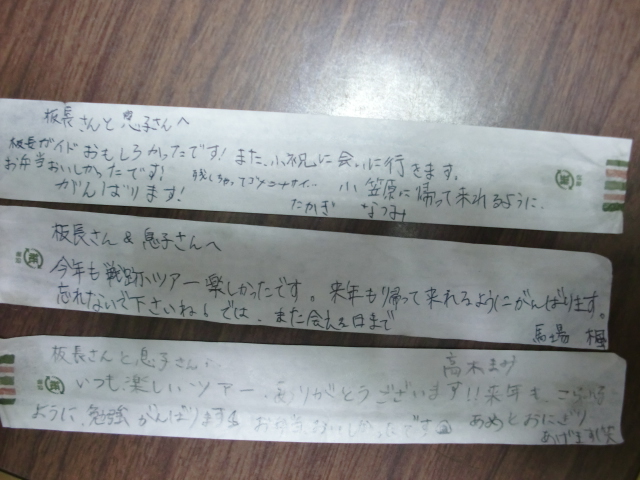 板長さんと息子さんへ
板長ガイドおもしろかったです! また、小祝に会いに行きます。
お弁当おいしかったです! 残しちゃってゴメンナサイ…
小笠原に帰って来れるように、
がんばります!
たかぎ なつみ
板長さん&息子さんへ
今年も戦跡ツアー楽しかったです。来年もり帰って来れるようにがんばります。
忘れないで下さいね! では、また会える日まで
馬場 楓
板長さんと息子さんへ
高木まか
いつも楽しいツアー、ありがとうございます!!来年も、
ように、勉強がんばります お弁当おいしかったです あめとおにぎり
あげます(笑